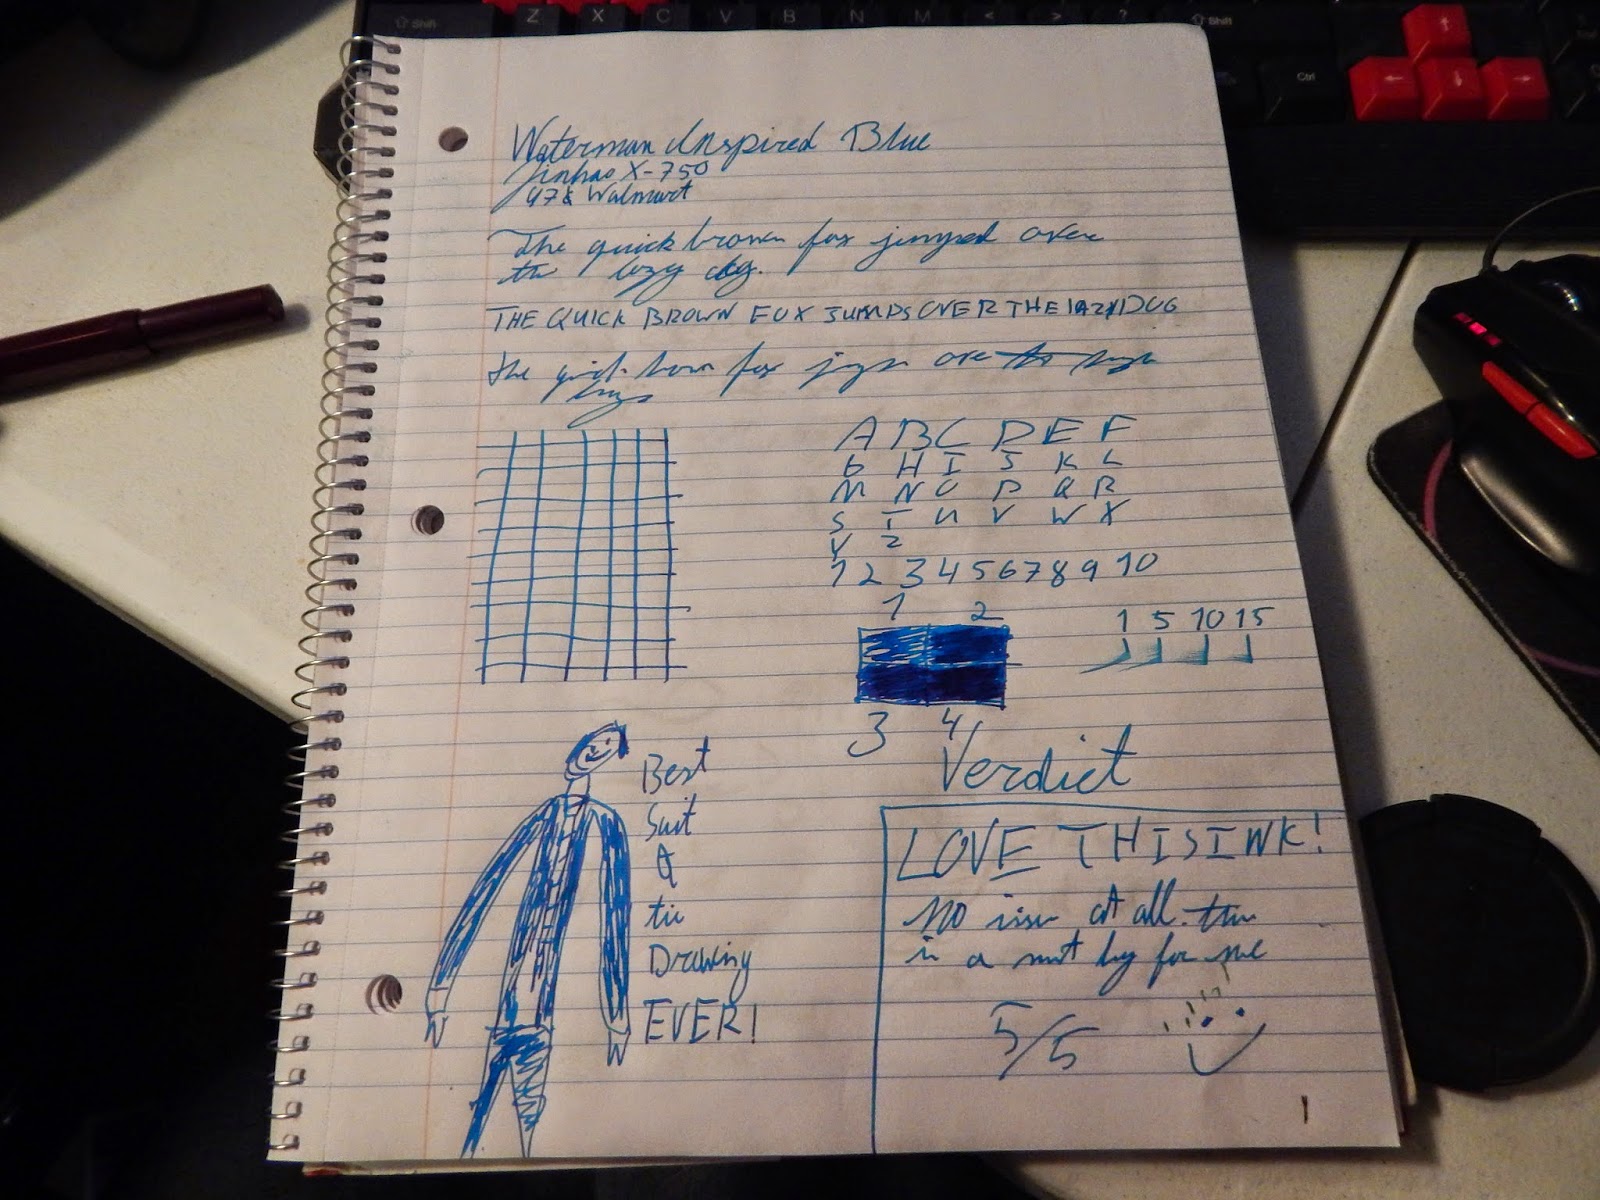 Shift Z X C V B N M < > ? Shift
Ctrl
Waterman Inspired Blue
Jinhao X-750
97¢ Walmart
The quick brown fox jumped over
the lazy dog.
THE QUICK BROWN FOX JUMPS OVER THE LAZY DOG
the quick brown fox
A B C D E F
G H I J K L
M N O P Q R
S T U V W X
Y Z
1 2 3 4 5 6 7 8 9 10
1 2
1 5 10 15
3 4
Verdict
Best
Suit
&
tie
Drawing
EVER!
LOVE THIS INK!
No issue at all. this
is a must buy for me
5/5
1